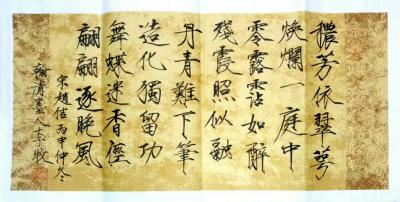 穠芳依翠萼
煥爛一庭中
零露霑如醉
殘霞照似融
丹青難下筆
造化獨留功
舞蝶迷香徑
翩翩逐晚風
宋趙佶 丙申仲冬
翰濤墨人李牧